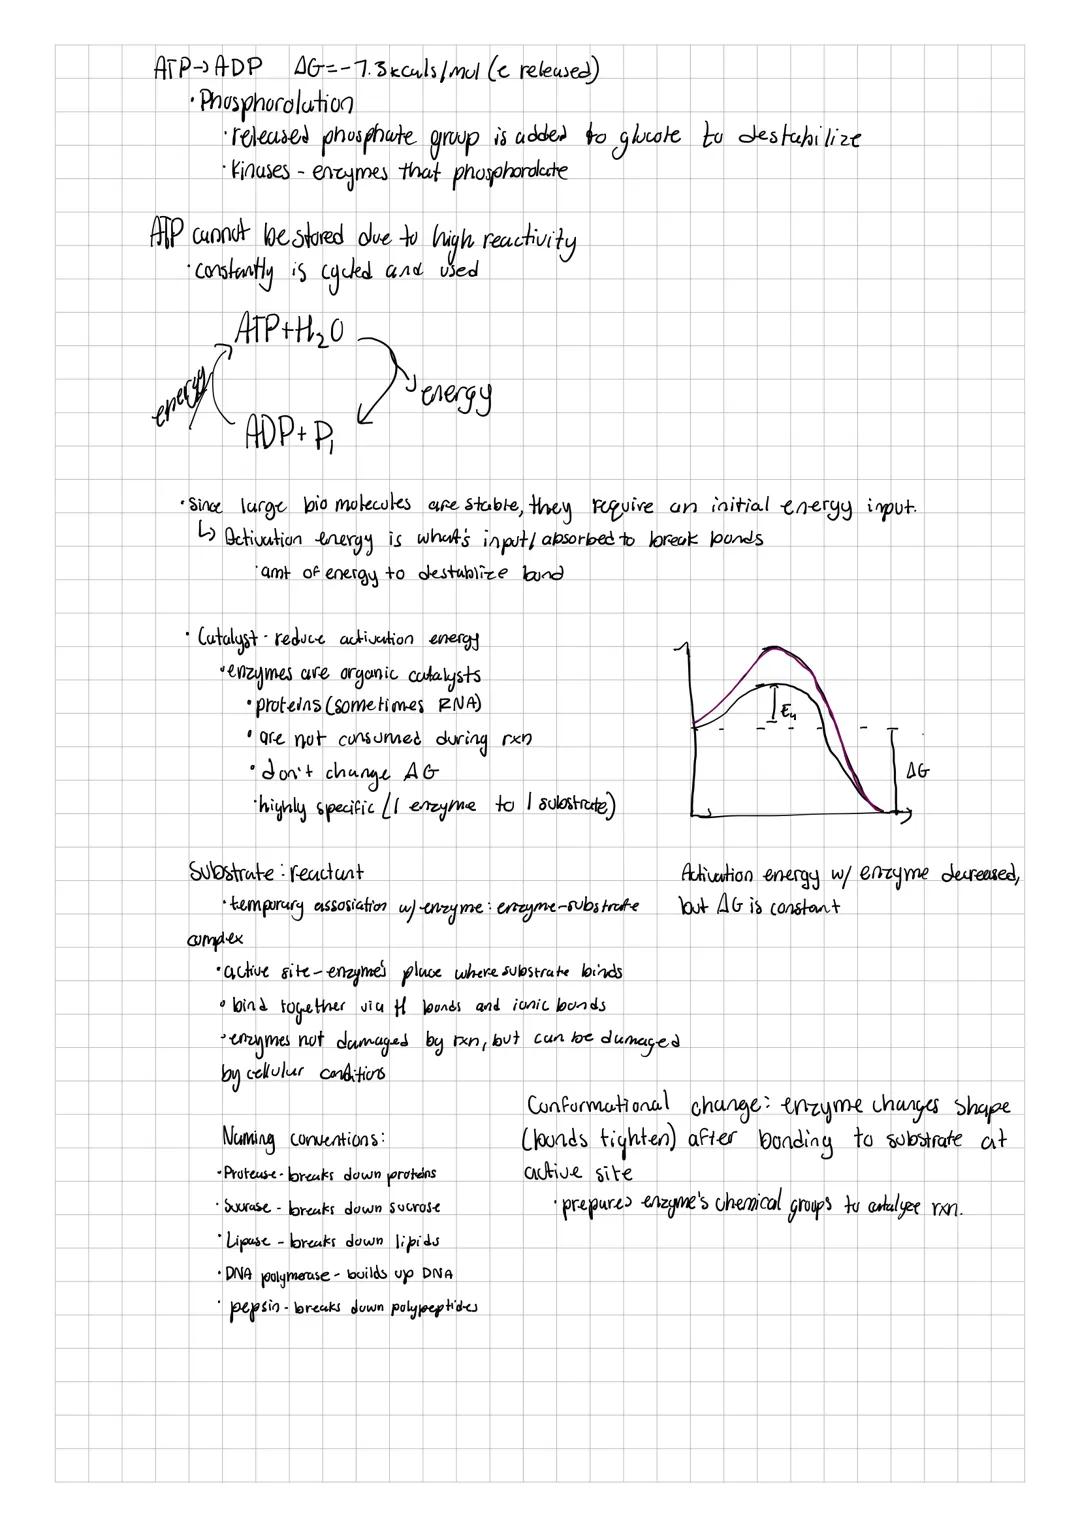 ATP→ADP ΔG=-7.3kcals/mol (e released)
·Phosphorolation
·released phosphate group is added to glucose to destabilize
·Kinases - enzymes that phosphorolate
ATP cannot be stored due to high reactivity
·constantly is cycled and used
ATP+H₂O
energy
energy
ADP+Pᵢ
·Since large bio molecules are stable, they require an initial energy input.
↳ Activation energy is what's input/absorbed to break bonds
·amt of energy to destablize bond
·Catalyst - reduce activation energy
·enzymes are organic catalysts
·proteins (sometimes RNA)
·are not consumed during rxn
·don't change ΔG
·highly specific (1 enzyme to 1 substrate)
Eₐ
ΔG
Activation energy w/ enzyme decreased,
but ΔG is constant
Substrate: reactant
·temporary assosiation w/ enzyme: enzyme-substrate
complex
·active site - enzyme's place where substrate binds
·bind together via H bonds and ionic bonds
·enzymes not damaged by rxn, but can be damaged
by cellular conditions
Conformational change: enzyme changes shape
(bonds tighten) after bonding to substrate at
active site
·prepares enzyme's chemical groups to catalyze rxn.
Naming conventions:
·Protease - breaks down proteins
·Sucrase - breaks down sucrose
·Lipase - breaks down lipids
·DNA polymerase - builds up DNA
·pepsin - breaks down polypeptides